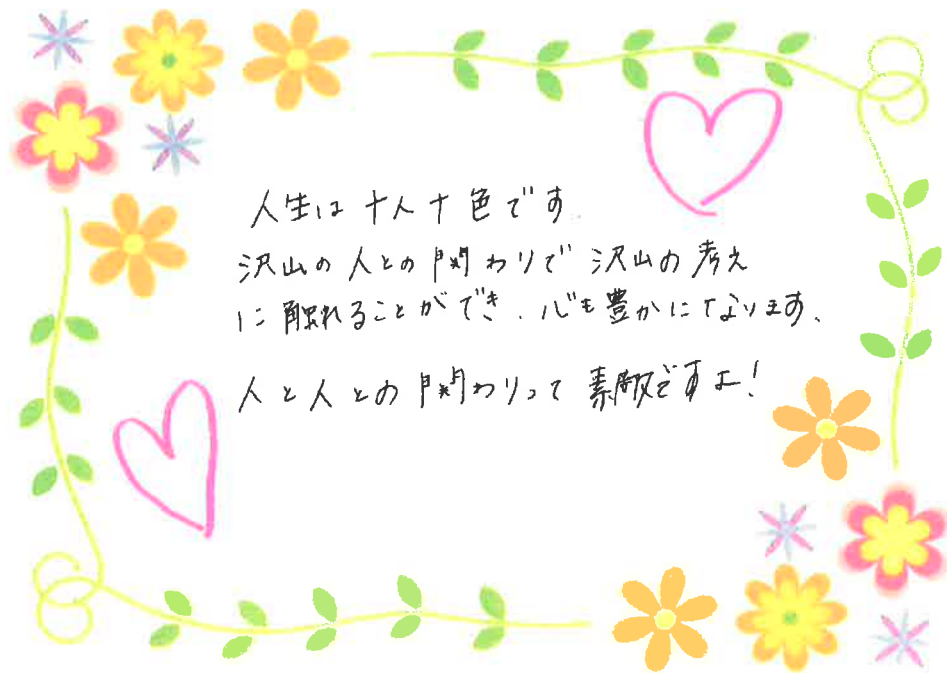 人生は十人十色です
沢山の人との関わりで沢山の考え
に触れることができ、心も豊かになります。
人と人との関わりって素敵ですよ!